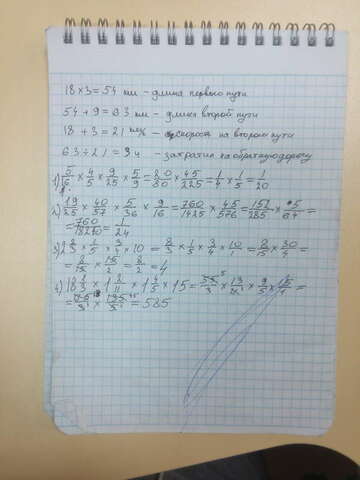 18×3=54 км - длина первого пути
54+9=63 км - длина второй пути
18+3=21 км/ч - скорость на втором пути
63÷21=3ч - затратил на обратную дорогу
1) 5/16 × 4/5 × 9/25 × 5/9 = 20/80 × 45/225 = 1/4 × 1/5 = 1/20
2) 19/25 × 40/57 × 5/36 × 9/16 = 760/1425 × 45/576 = 152/285 × 5/64 =
= 760/18240 = 1/24
3) 2 2/3 × 1/5 × 3/4 × 10 = 8/3 × 1/5 × 3/4 × 10/1 = 8/15 × 30/4 =
= 8/15 × 15/2 = 8/2 = 4
4) 18 1/3 × 1 2/11 × 1 4/5 × 15 = 55/3 × 13/11 × 9/5 × 15/1 =
= × = 585